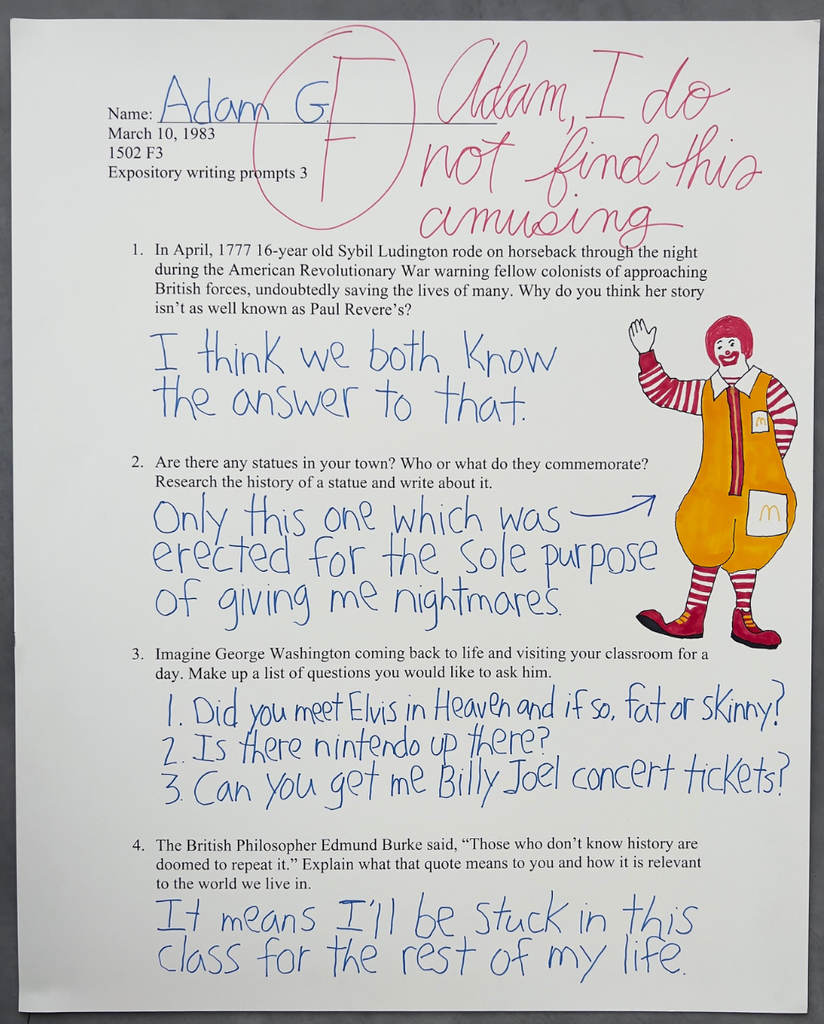 Name: Adam G.
F
Adam, I do
not find this
amusing
March 10, 1983
1502 F3
Expository writing prompts 3
1. In April, 1777 16-year old Sybil Ludington rode on horseback through the night
during the American Revolutionary War warning fellow colonists of approaching
British forces, undoubtedly saving the lives of many. Why do you think her story
isn’t as well known as Paul Revere’s?
I think we both know
the answer to that.
2. Are there any statues in your town? Who or what do they commemorate?
Research the history of a statue and write about it.
Only this one which was
erected for the sole purpose
of giving me nightmares.
M
M
3. Imagine George Washington coming back to life and visiting your classroom for a
day. Make up a list of questions you would like to ask him.
1. Did you meet Elvis in Heaven and if so, fat or skinny?
2. Is there nintendo up there?
3. Can you get me Billy Joel concert tickets?
4. The British Philosopher Edmund Burke said, “Those who don’t know history are
doomed to repeat it.” Explain what that quote means to you and how it is relevant
to the world we live in.
It means I'll be stuck in this
class for the rest of my life.